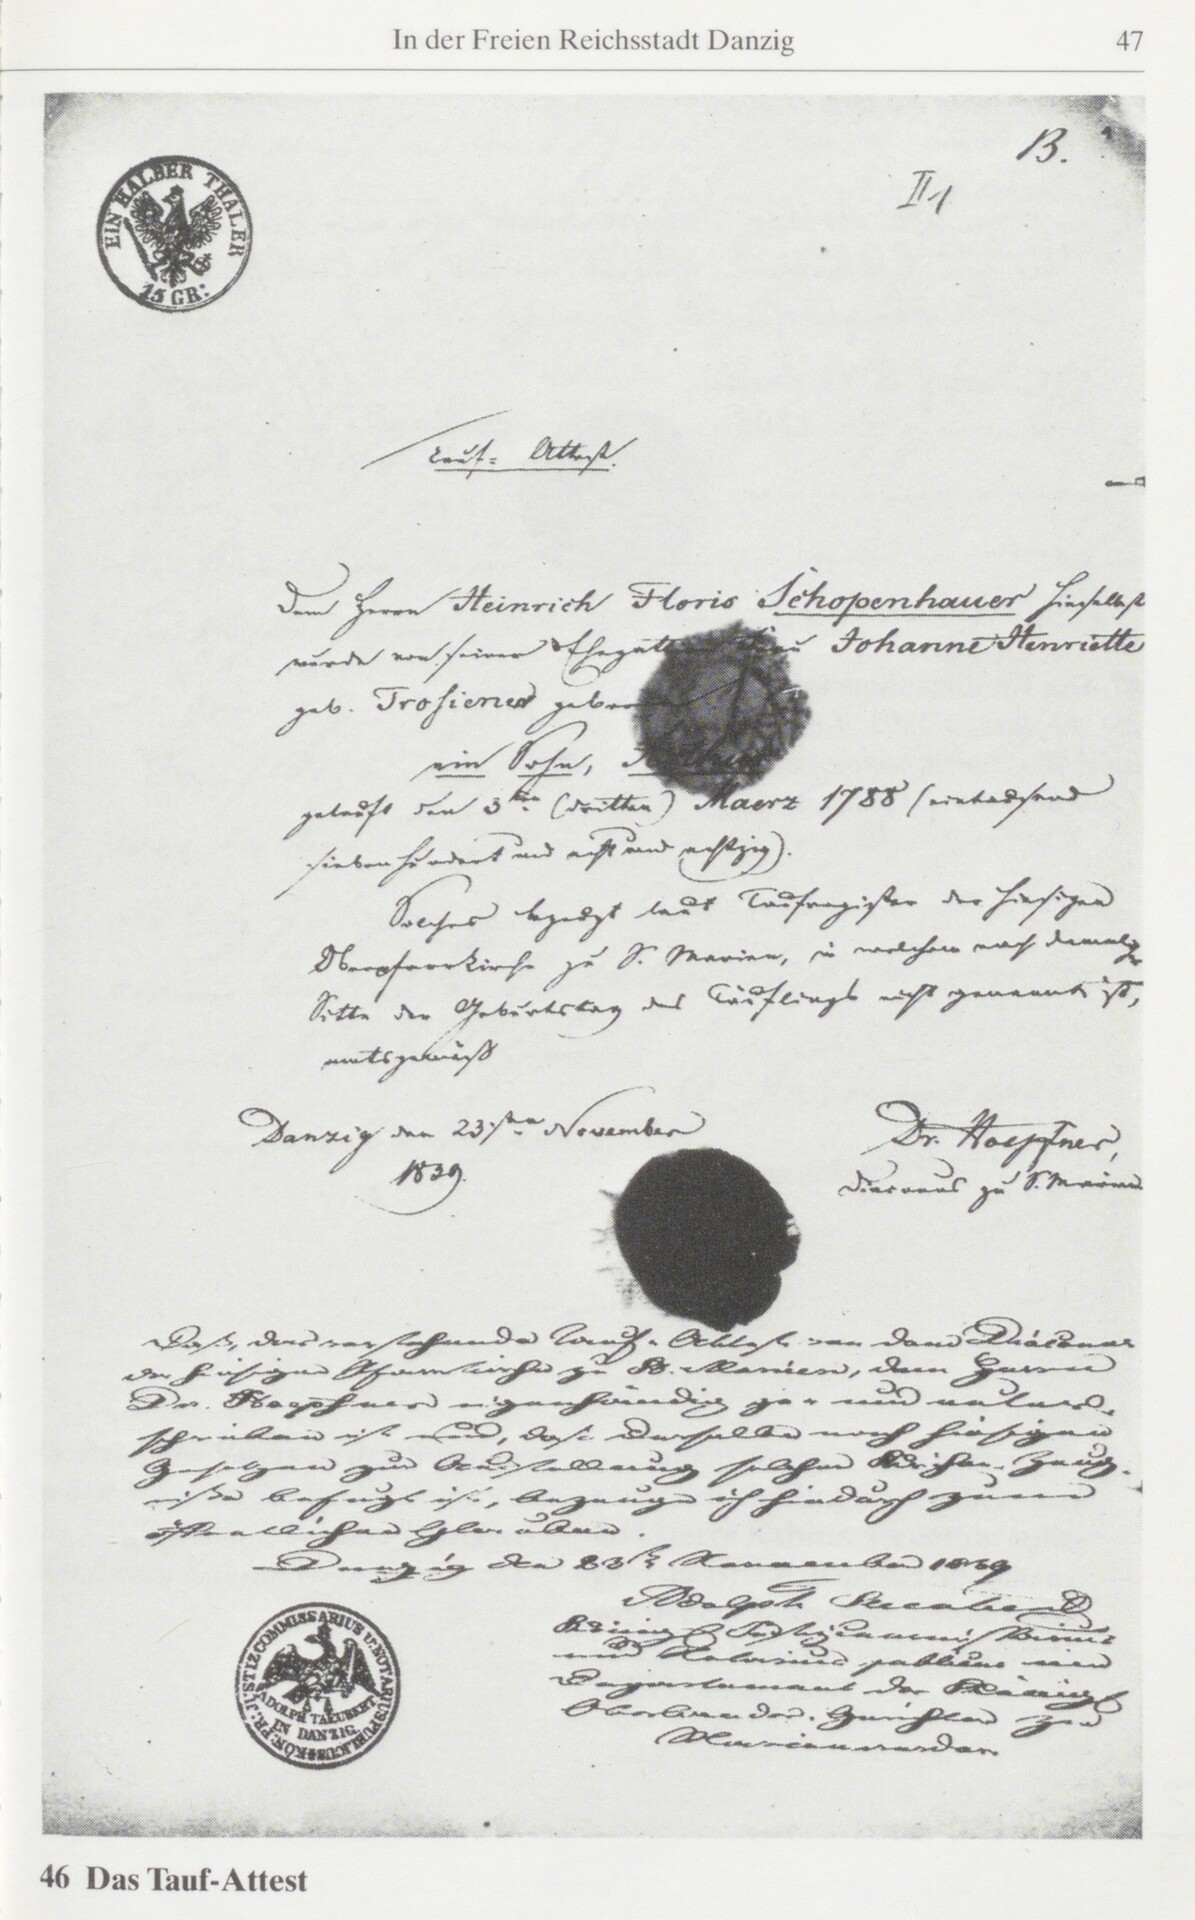 In der Freien Reichsstadt Danzig
47
B.
II 1
EIN HALBER THALER
15 GR:
Tauf-Attest.
Dem Herrn Heinrich Floris Schopenhauer hieselbst
wurde von seiner Ehegattin Frau Johanne Henriette
geb. Trosiener geboren
ein Sohn,
getauft den 3ten (dritten) Maerz 1788 (eintausend
siebenhundert und acht und achtzig).
Solches bezeugt laut Taufregister der hiesigen
Oberpfarrkirche zu S. Marien, in welchem nach damaliger
Sitte der Geburtstag des Täuflings nicht genannt ist,
amtsgemäß
Danzig den 23sten November
1839.
Dr. Hoepfner,
Diaconus zu S. Marien
Daß, das vorstehende Tauf-Attest von dem Diaconus
der hiesigen Pfarrkirche zu St. Marien, dem Herrn
Dr. Hoepfner eigenhändig ge- und unter-
schrieben ist und, daß derselbe nach hiesigen
Gesetzen zur Ausstellung solcher Kirchen-Zeug-
niße befugt ist, bezeuge ich hiedurch zum
öffentlichen Glauben.
Danzig den 23 November 1839
Adolph Taeubert
Königl Justizcommissarius
und Notarius publicus im
Departement des Königl
Oberlandes-Gerichts zu
Marienwerder.
KÖN: PR: JUSTIZCOMMISSARIUS U: NOTARIUS PUBLICUS
ADOLPH TAEUBERT
IN DANZIG.
46 Das Tauf-Attest